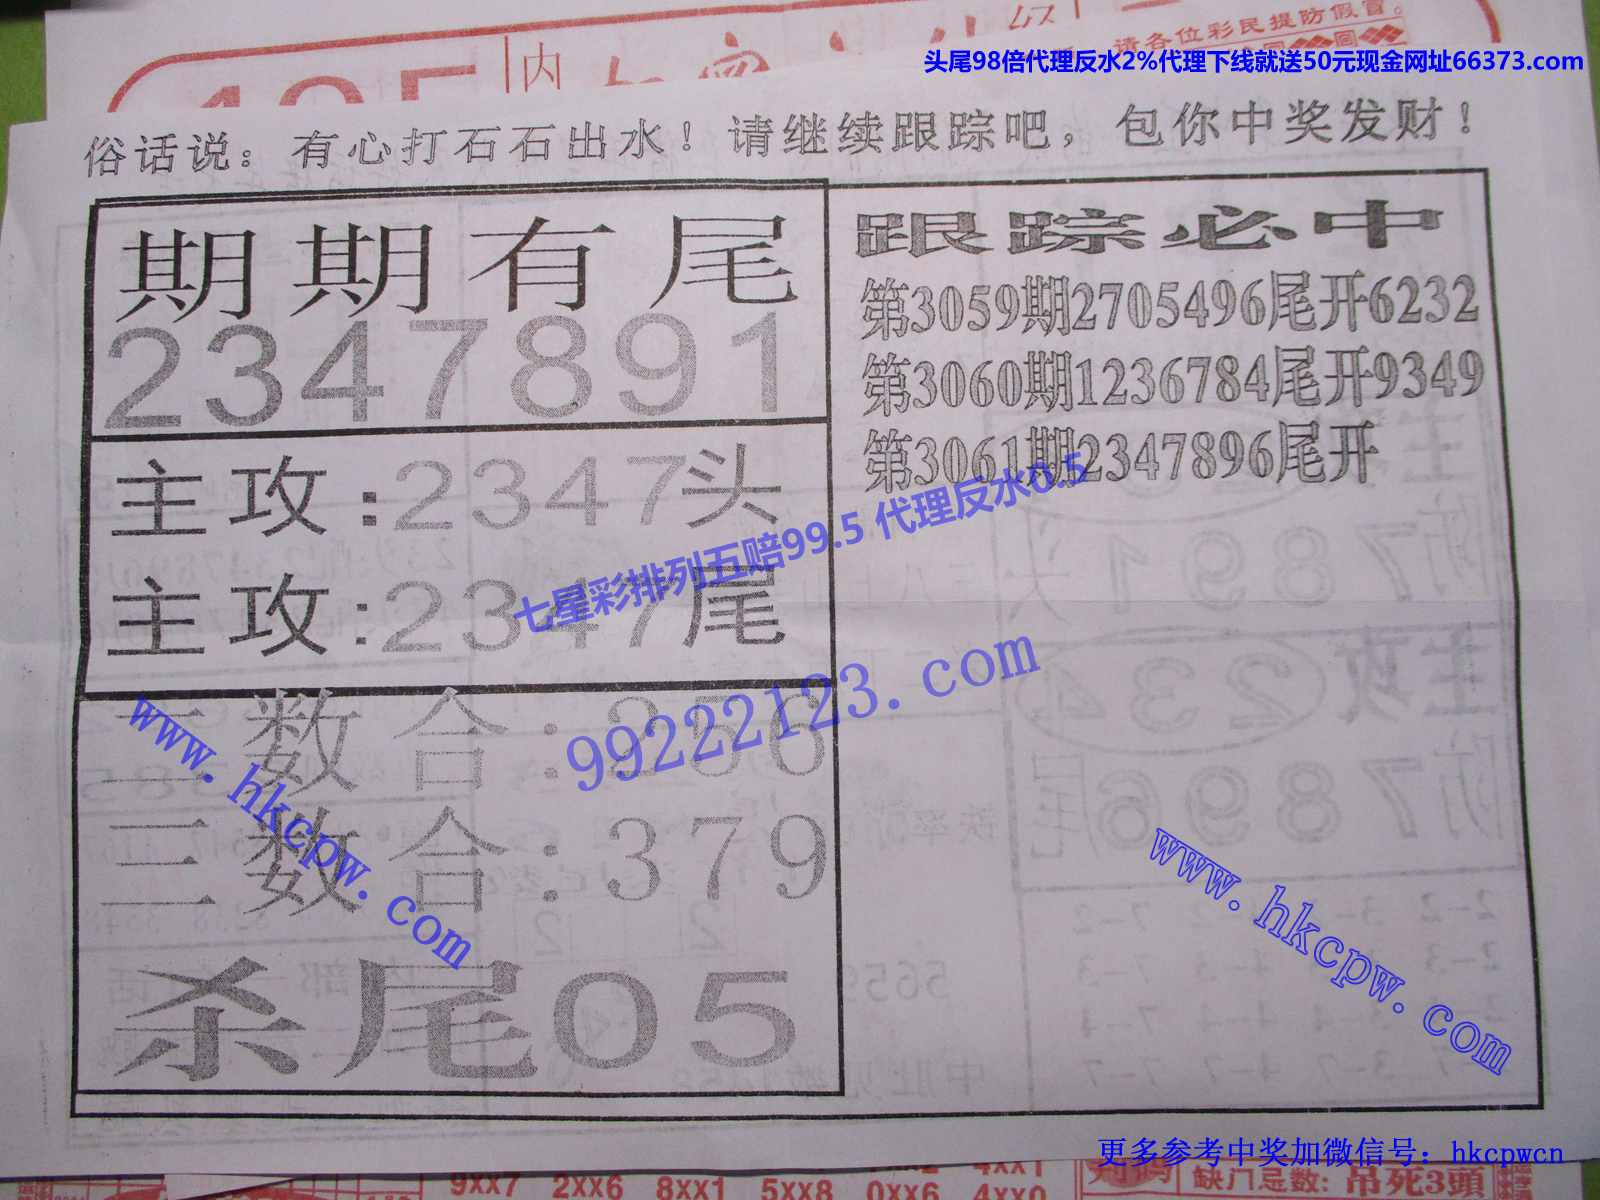 内
请各位彩民提防假冒。
头尾98倍代理反水2%代理下线就送50元现金网址66373.com
俗话说：有心打石石出水！请继续跟踪吧，包你中奖发财！
期期有尾
2347891
主攻:2347头
主攻:2347尾
二数合:256
三数合:379
杀尾05
跟踪必中
第3059期2705496尾开6232
第3060期1236784尾开9349
第3061期2347896尾开
七星彩排列五赔99.5 代理反水0.5
99222123.com
www.hkcpw.com
www.hkcpw.com
更多参考中奖加微信号：hkcpwcn
9xx7 2xx6 8xx1 5xx8 0xx6 4xx1
缺门总数:吊死3頭